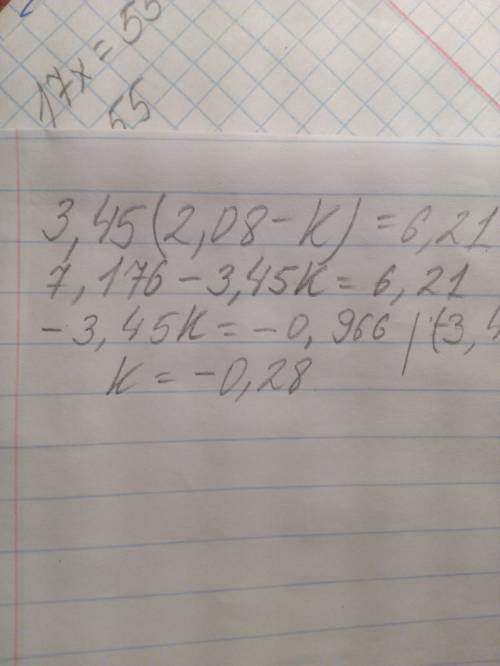 17x = 55
55
3,45(2,08 - K) = 6,21
7,176 - 3,45K = 6,21
- 3,45K = -0,966 | :(-3,4
K = -0,28